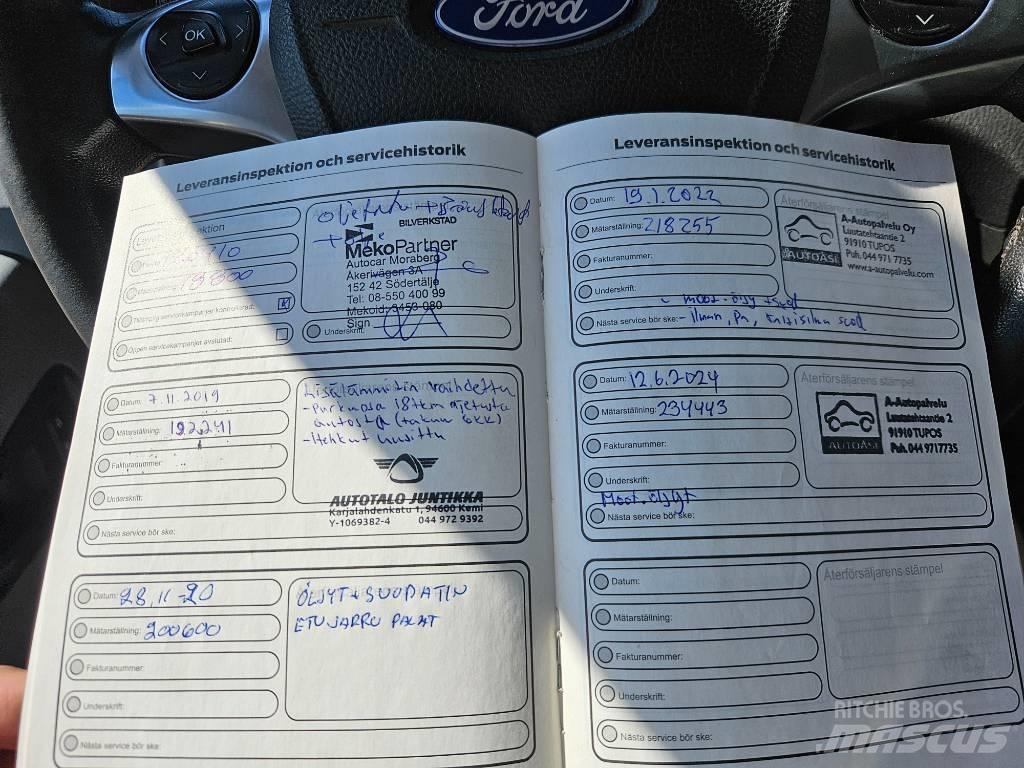 OK
Ford
Leveransinspektion och servicehistorik
BILVERKSTAD
MekoPartner
Autocar Moraberg
Åkerivägen 3A
152 42 Södertälje
Tel: 08-550 400 99
Mekoid: 3453 080
Sign
Underskrift:
Datum: 7.11.2019
Mätarställning: 192241
Fakturanummer:
Underskrift:
Nästa service bör ske:
Lisälämmitin vaihdettu
- Purkuosa 18tkm ajetusta
autosta (takuu 6kk)
- Hehkut uusittu
AUTOTALO JUNTIKKA
Karjalahdenkatu 1, 94600 Kemi
Y-1069382-4 044 972 9392
Datum: 28.11-20
Mätarställning: 200600
Fakturanummer:
Underskrift:
Nästa service bör ske:
ÖLJYT+SUODATIN
ETUJARRU PALAT
Leveransinspektion och servicehistorik
Datum: 19.1.2022
Mätarställning: 218255
Fakturanummer:
Underskrift:
Nästa service bör ske:
Återförsäljarens stämpel
A-Autopalvelu Oy
Luutatehtaantie 2
91910 TUPOS
Puh. 044 971 7735
www.a-autopalvelu.com
AUTOASI
Datum: 12.6.2024
Mätarställning: 234443
Fakturanummer:
Underskrift:
Moot.öljyt
Nästa service bör ske:
Återförsäljarens stämpel
A-Autopalvelu
Luutatehtaantie 2
91910 TUPOS
Puh. 044 9717735
AUTOASI
Datum:
Mätarställning:
Fakturanummer:
Underskrift:
Nästa service bör ske:
Återförsäljarens stämpel
RITCHIE BROS.
mascus